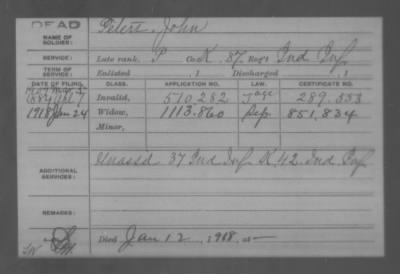 DEAD
NAME OF SOLDIER: Peters, John
SERVICE: Late rank, P Co. K, 87 Reg't Ind Inf
TERM OF SERVICE: Enlisted , 1 Discharged , 1
DATE OF FILING. CLASS. APPLICATION NO. LAW. CERTIFICATE NO.
1884 Invalid, 510,282 289.533
1918 Jan 24 Widow, 1113.860 851,834
Minor,
ADDITIONAL SERVICES: Unassd 37 Ind Inf. K. 42 Ind Inf
REMARKS:
Died Jan 12, 1918, at —